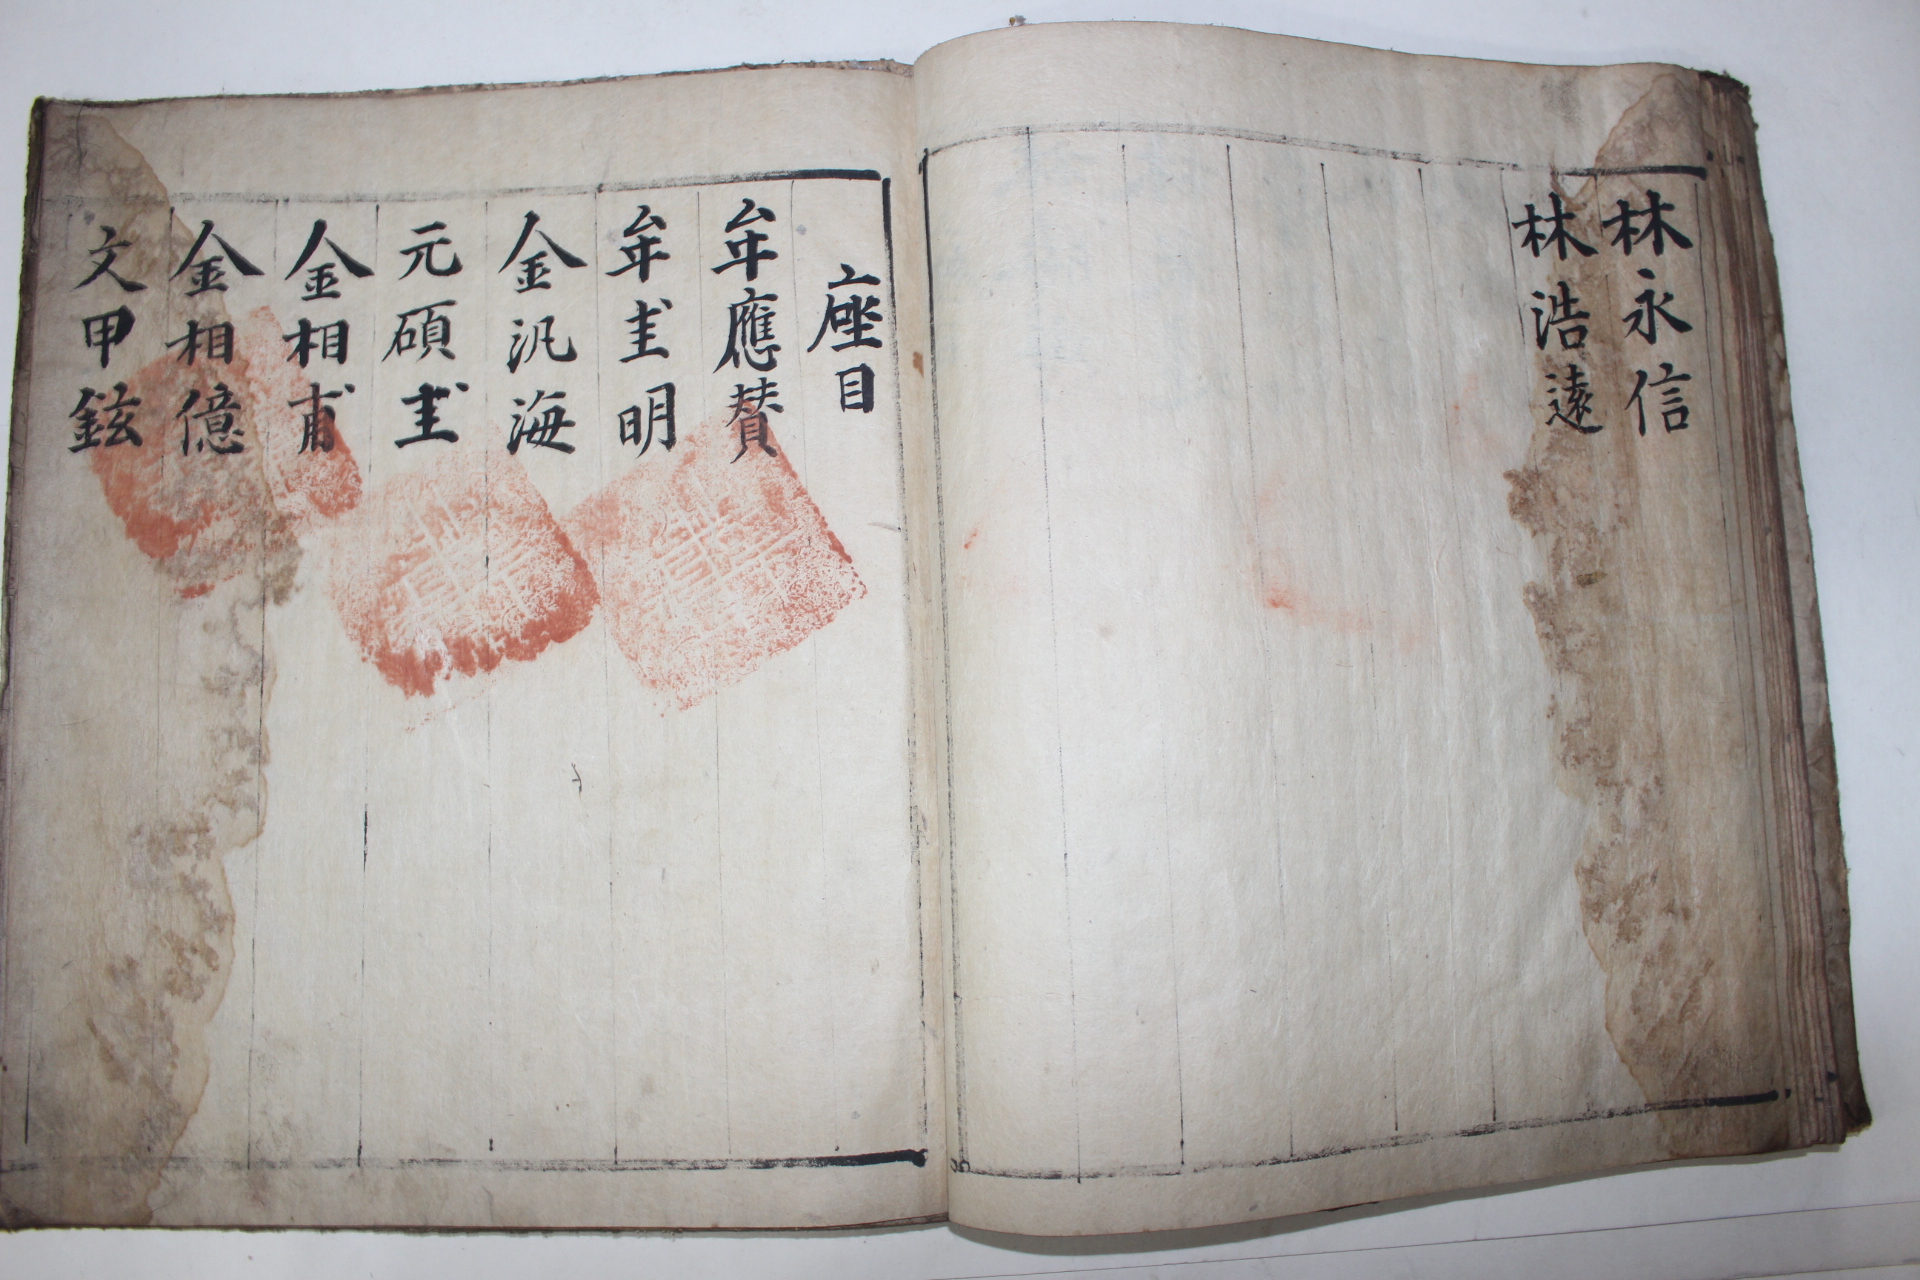 林永信
林浩遠
座目
牟應賛
牟圭明
金汎海
元碩圭
金相甫
金相億
文甲鎡